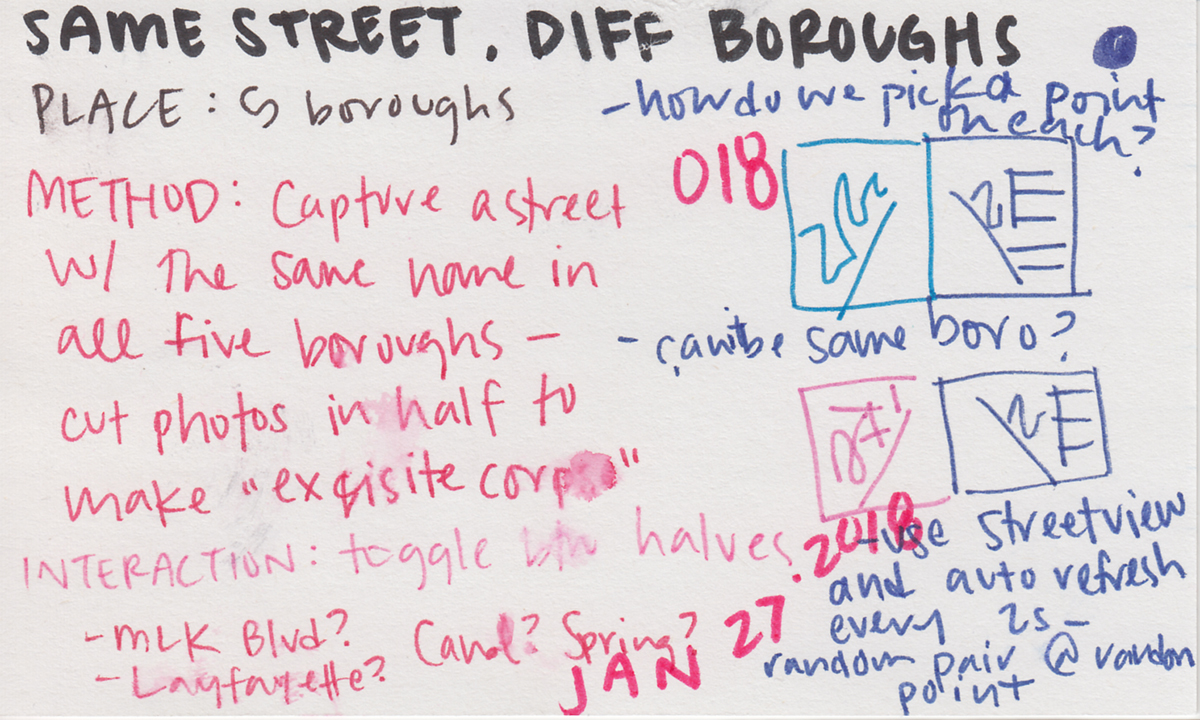 SAME STREET. DIFF BOROUGHS
PLACE: 5 boroughs
METHOD: Capture a street
w/ the same name in
all five boroughs —
cut photos in half to
make "exqisite corpse"
INTERACTION: toggle btw halves.
- MLK Blvd? Canal? Spring?
- Layfayette?
- how do we pick a point
on each?
018
- can't be same boro?
- use streetview
and auto refresh
every 2s -
random pair @ random
point
JAN 27 .2018